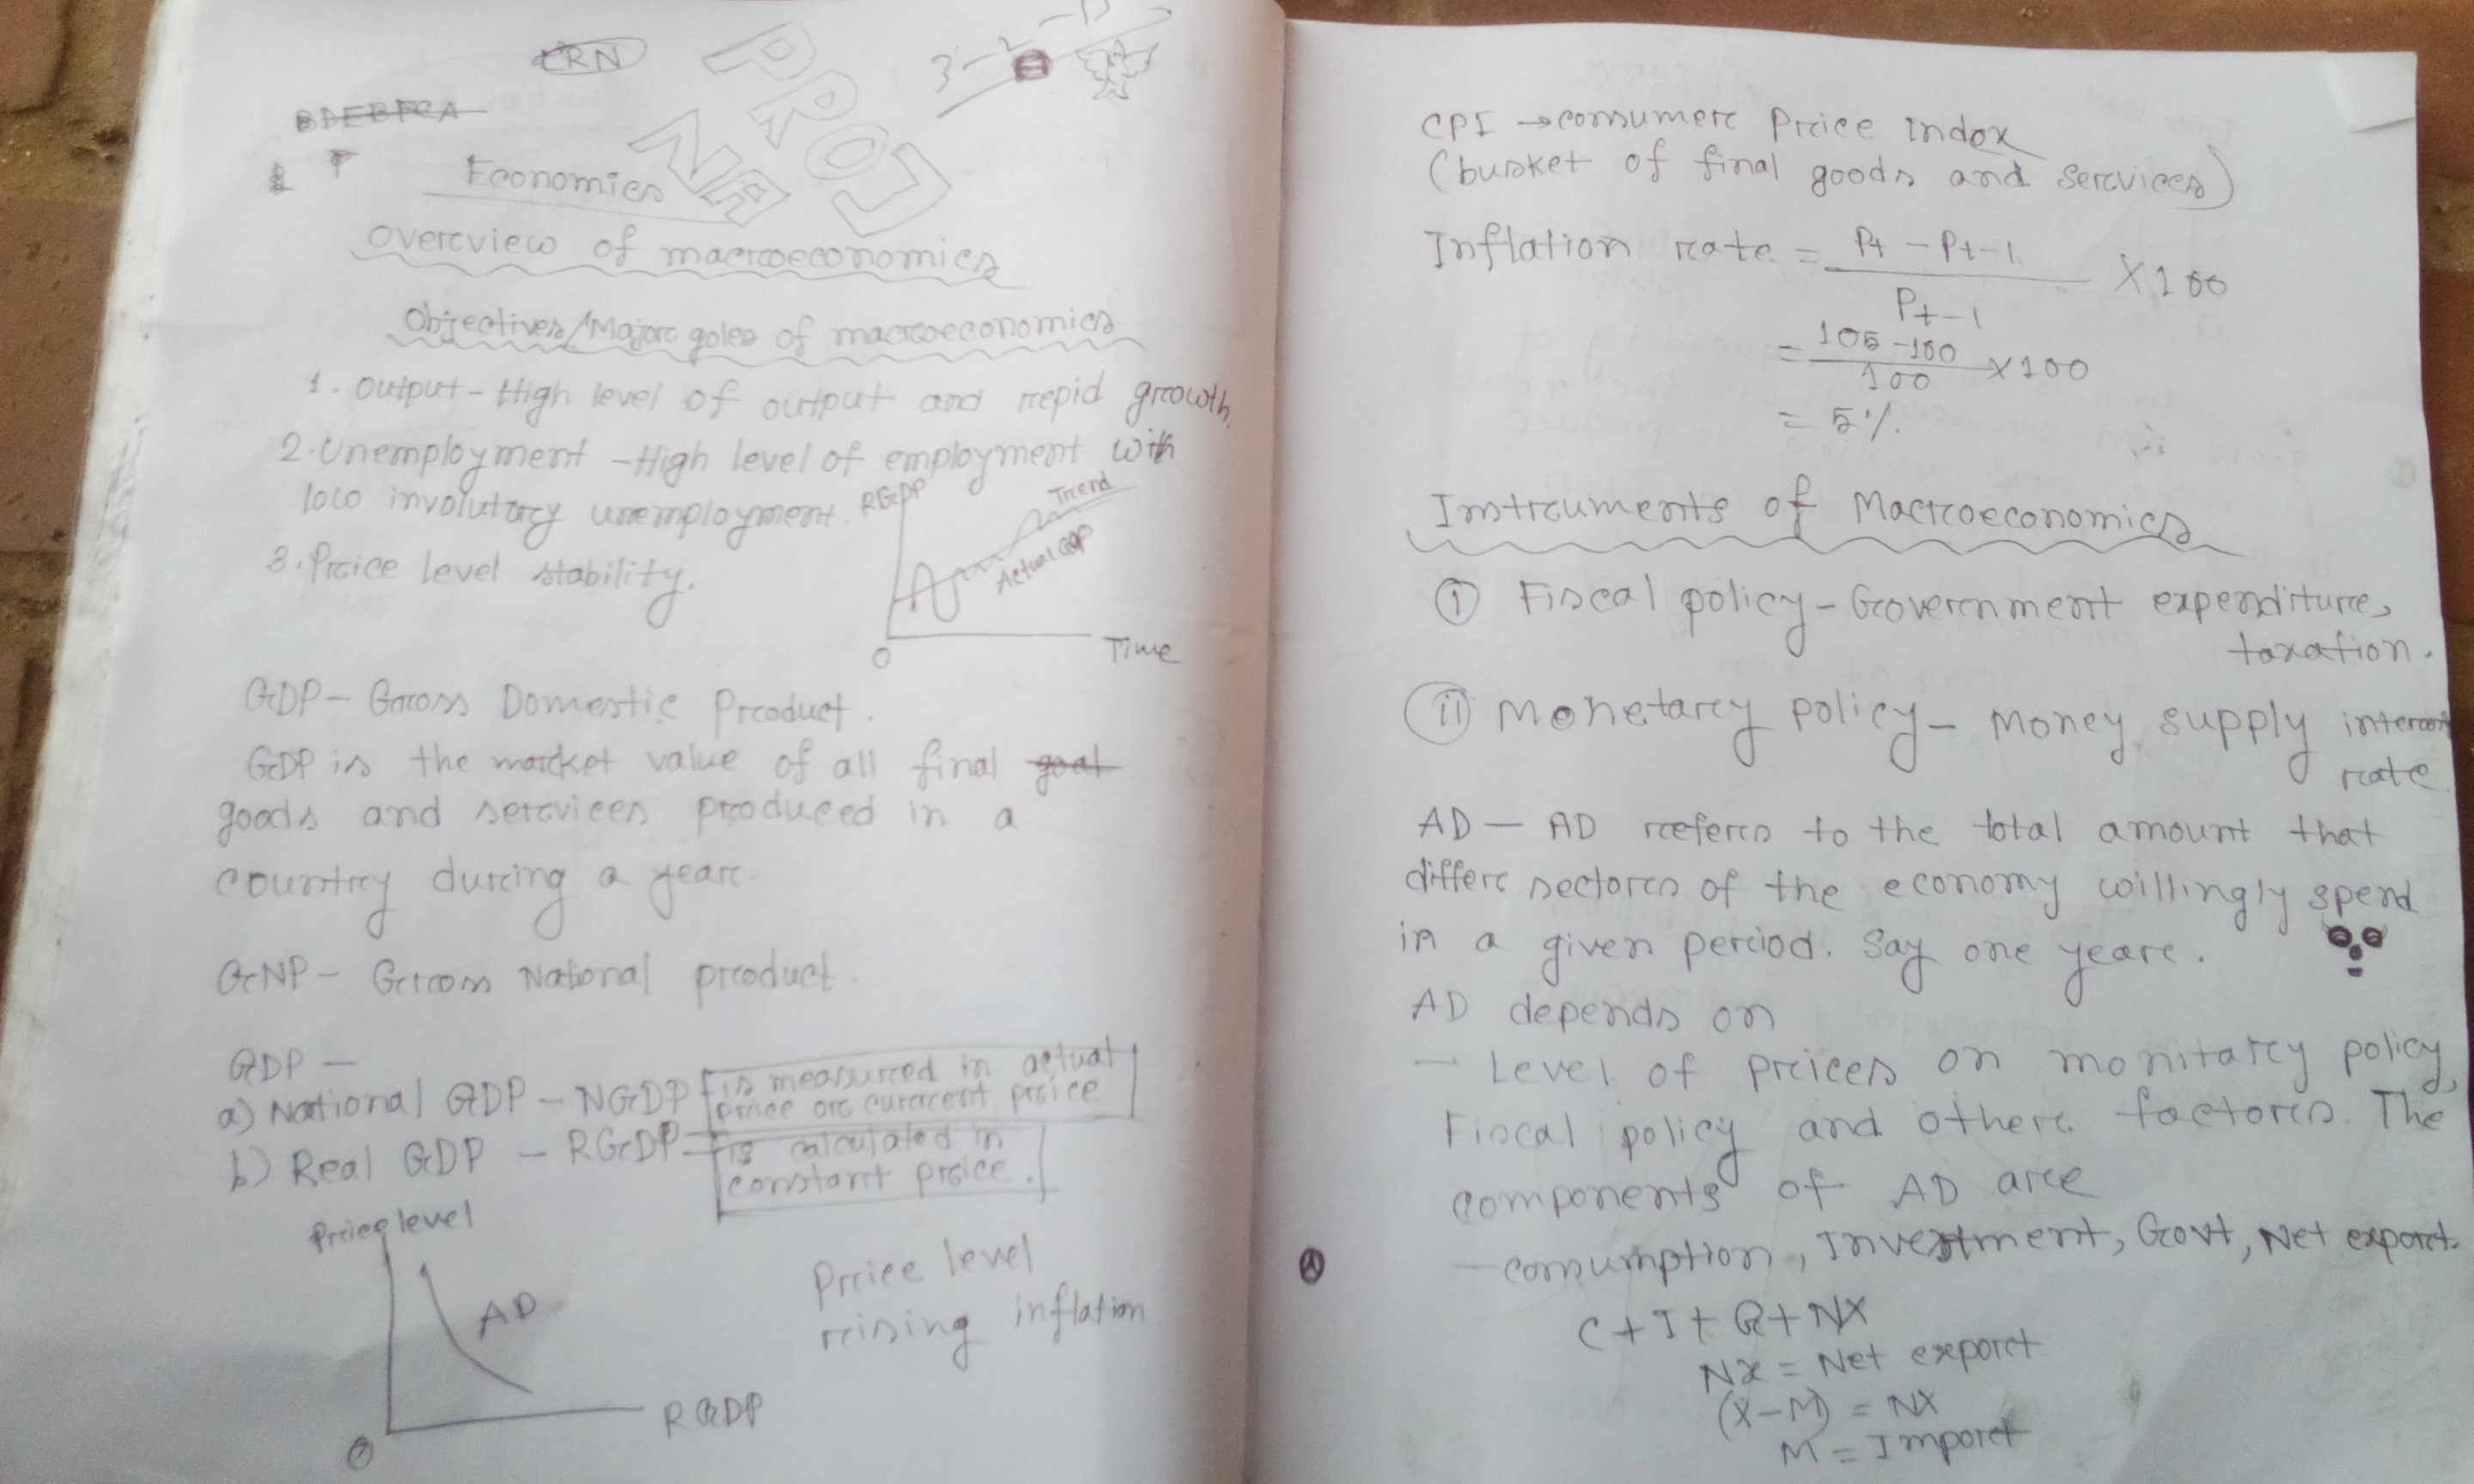 CRN
BDEBFCA
PROJ
NA
3 - 2 - 1
Economics
Overview of macroeconomics
Objectives/Major goles of macroeconomics
1. Output - High level of output and repid growth.
2. Unemployment - High level of employment with
low involutary unemployment.
RGDP
Trend
Actual GDP
3. Price level stability.
O
Time
GDP - Gross Domestic Product.
GDP is the market value of all final goat
goods and services produced in a
country during a year.
GNP - Gross National product.
GDP -
a) National GDP - NGDP - is measured in actual
price or current price
b) Real GDP - RGDP - is calculated in
constant price.
Price level
AD
O
RGDP
Price level
rising inflation
CPI → consumer Price Index
(busket of final goods and services)
Inflation rate = Pt - Pt-1 / Pt-1 X 100
= 105 - 100 / 100 X 100
= 5%
Instruments of Macroeconomics
(i) Fiscal policy - Government expenditure,
taxation.
(ii) Monetary policy - Money supply
rate
AD - AD refers to the total amount that
differ sectors of the economy willingly spend
in a given period. Say one year.
AD depends on
- Level of prices on monitary policy,
Fiscal policy and other factors. The
components of AD are
- consumption, Investment, Govt, Net export.
C + I + G + NX
NX = Net export
(X - M) = NX
M = Import